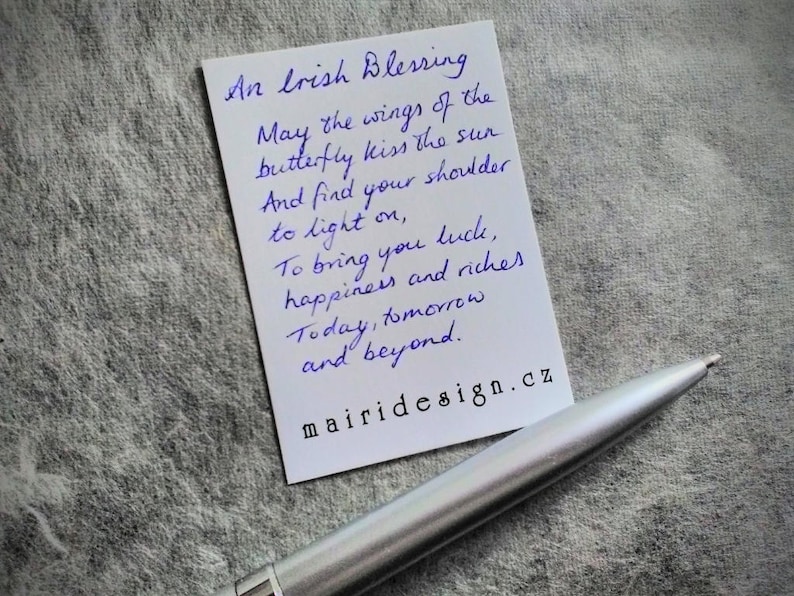 An Irish Blessing
May the wings of the
butterfly kiss the sun
And find your shoulder
to light on,
To bring you luck,
happiness and riches
Today, tomorrow
and beyond.
mairidesign.cz